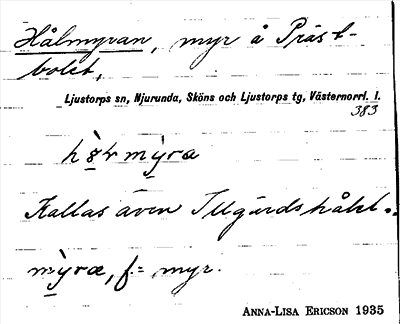 Hålmyran, myr å Präst-
bolet,
Ljustorps sn, Njurunda, Sköns och Ljustorps tg, Västernorrl. l.
383
mỳra
Kallas även Illgårdshålet..
mỳra, f.= myr.
ANNA-LISA ERICSON 1935